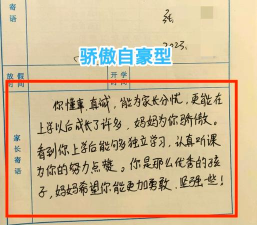 寄语
张
2023.
骄傲自豪型
放假时间
开学时间
家长寄语
你懂事真诚，能为家长分忧，更能在
上学以后成长了许多，妈妈为你骄傲。
看到你上学后能够独立学习，认真听课
为你的努力点赞。你是那么优秀的孩
子，妈妈希望你能更加勇敢、坚强一些！